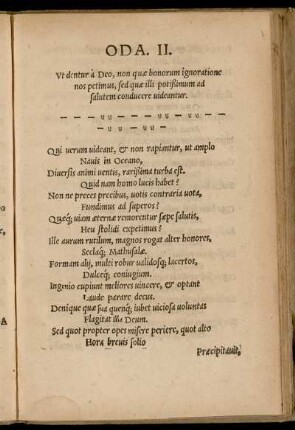 ODA. II.
Vt dentur à Deo, non quæ bonorum ignoratione
nos petimus, sed quæ illi potißimum ad
salutem conducere uideantur.
— — — — — ᴗᴗ — — ᴗᴗ — ᴗᴗ — —
— — ᴗᴗ — ᴗᴗ —
QVi uerum uideant, & non rapiantur, ut amplo
Nauis in Oceano,
Diuersis animi uentis, rarißima turba est.
Quid nam homo lucis habet?
Non ne preces precibus, uotis contraria uota,
Fundimus ad superos?
Quæq; uiam æternæ remorentur sæpe salutis,
Heu stolidi expetimus?
Ille aurum rutilum, magnos rogat alter honores,
Seclaq; Mathusalæ.
Formam alij, multi robur ualidosq; lacertos,
Dulceq; coniugium.
Ingenio cupiunt meliores uincere, & optant
Laude parare decus.
Denique quæ sua quenq; iubet uiciosa uoluntas
Flagitat illa Deum.
Sed quot propter opes misere periere, quot alto
Hora breuis solio
Præcipitauit,